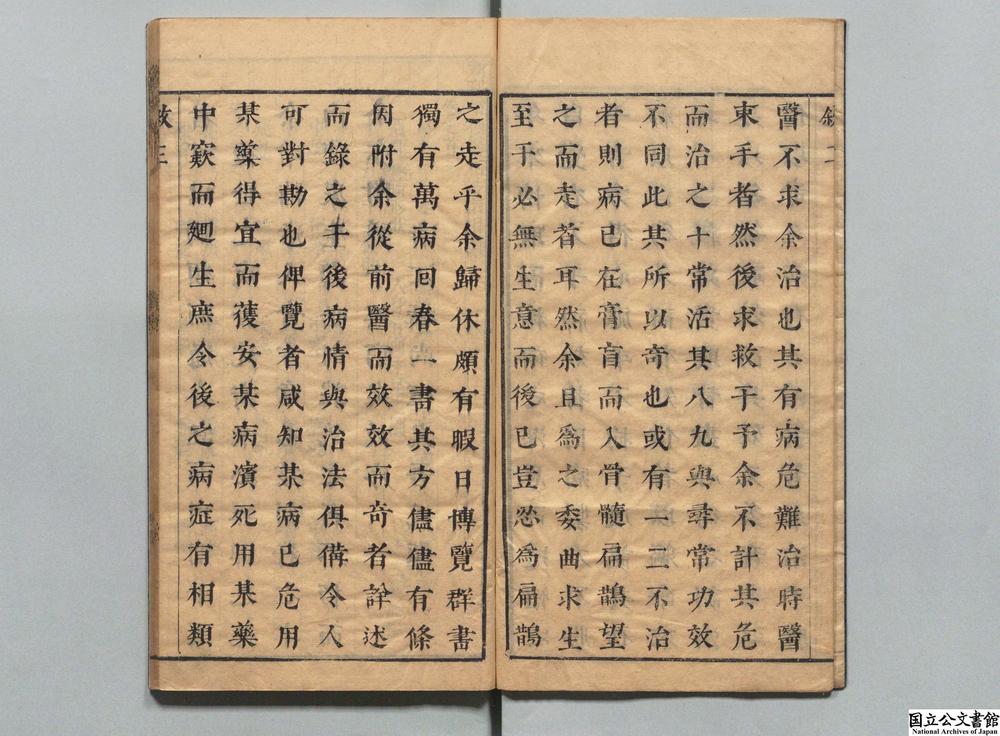 醫不求余治也其有病危難治時醫
束手者然後求救于予余不計其危
而治之十常活其八九與尋常功效
不同此其所以奇也或有一二不治
者則病已在膏肓而入骨髓扁鵲望
之而走者耳然余且為之委曲求生
至于必無生意而後已豈忍為扁鵲
之走乎余歸休頗有暇日博覽群書
獨有萬病囘春一書其方儘儘有條
因附余從前醫而效效而奇者詳述
而錄之于後病情與治法俱備令人
可對勘也俾覽者咸知某病已危用
某藥得宜而獲安某病濱死用某藥
中窾而廻生庶令後之病症有相類
国立公文書館
National Archives of Japan